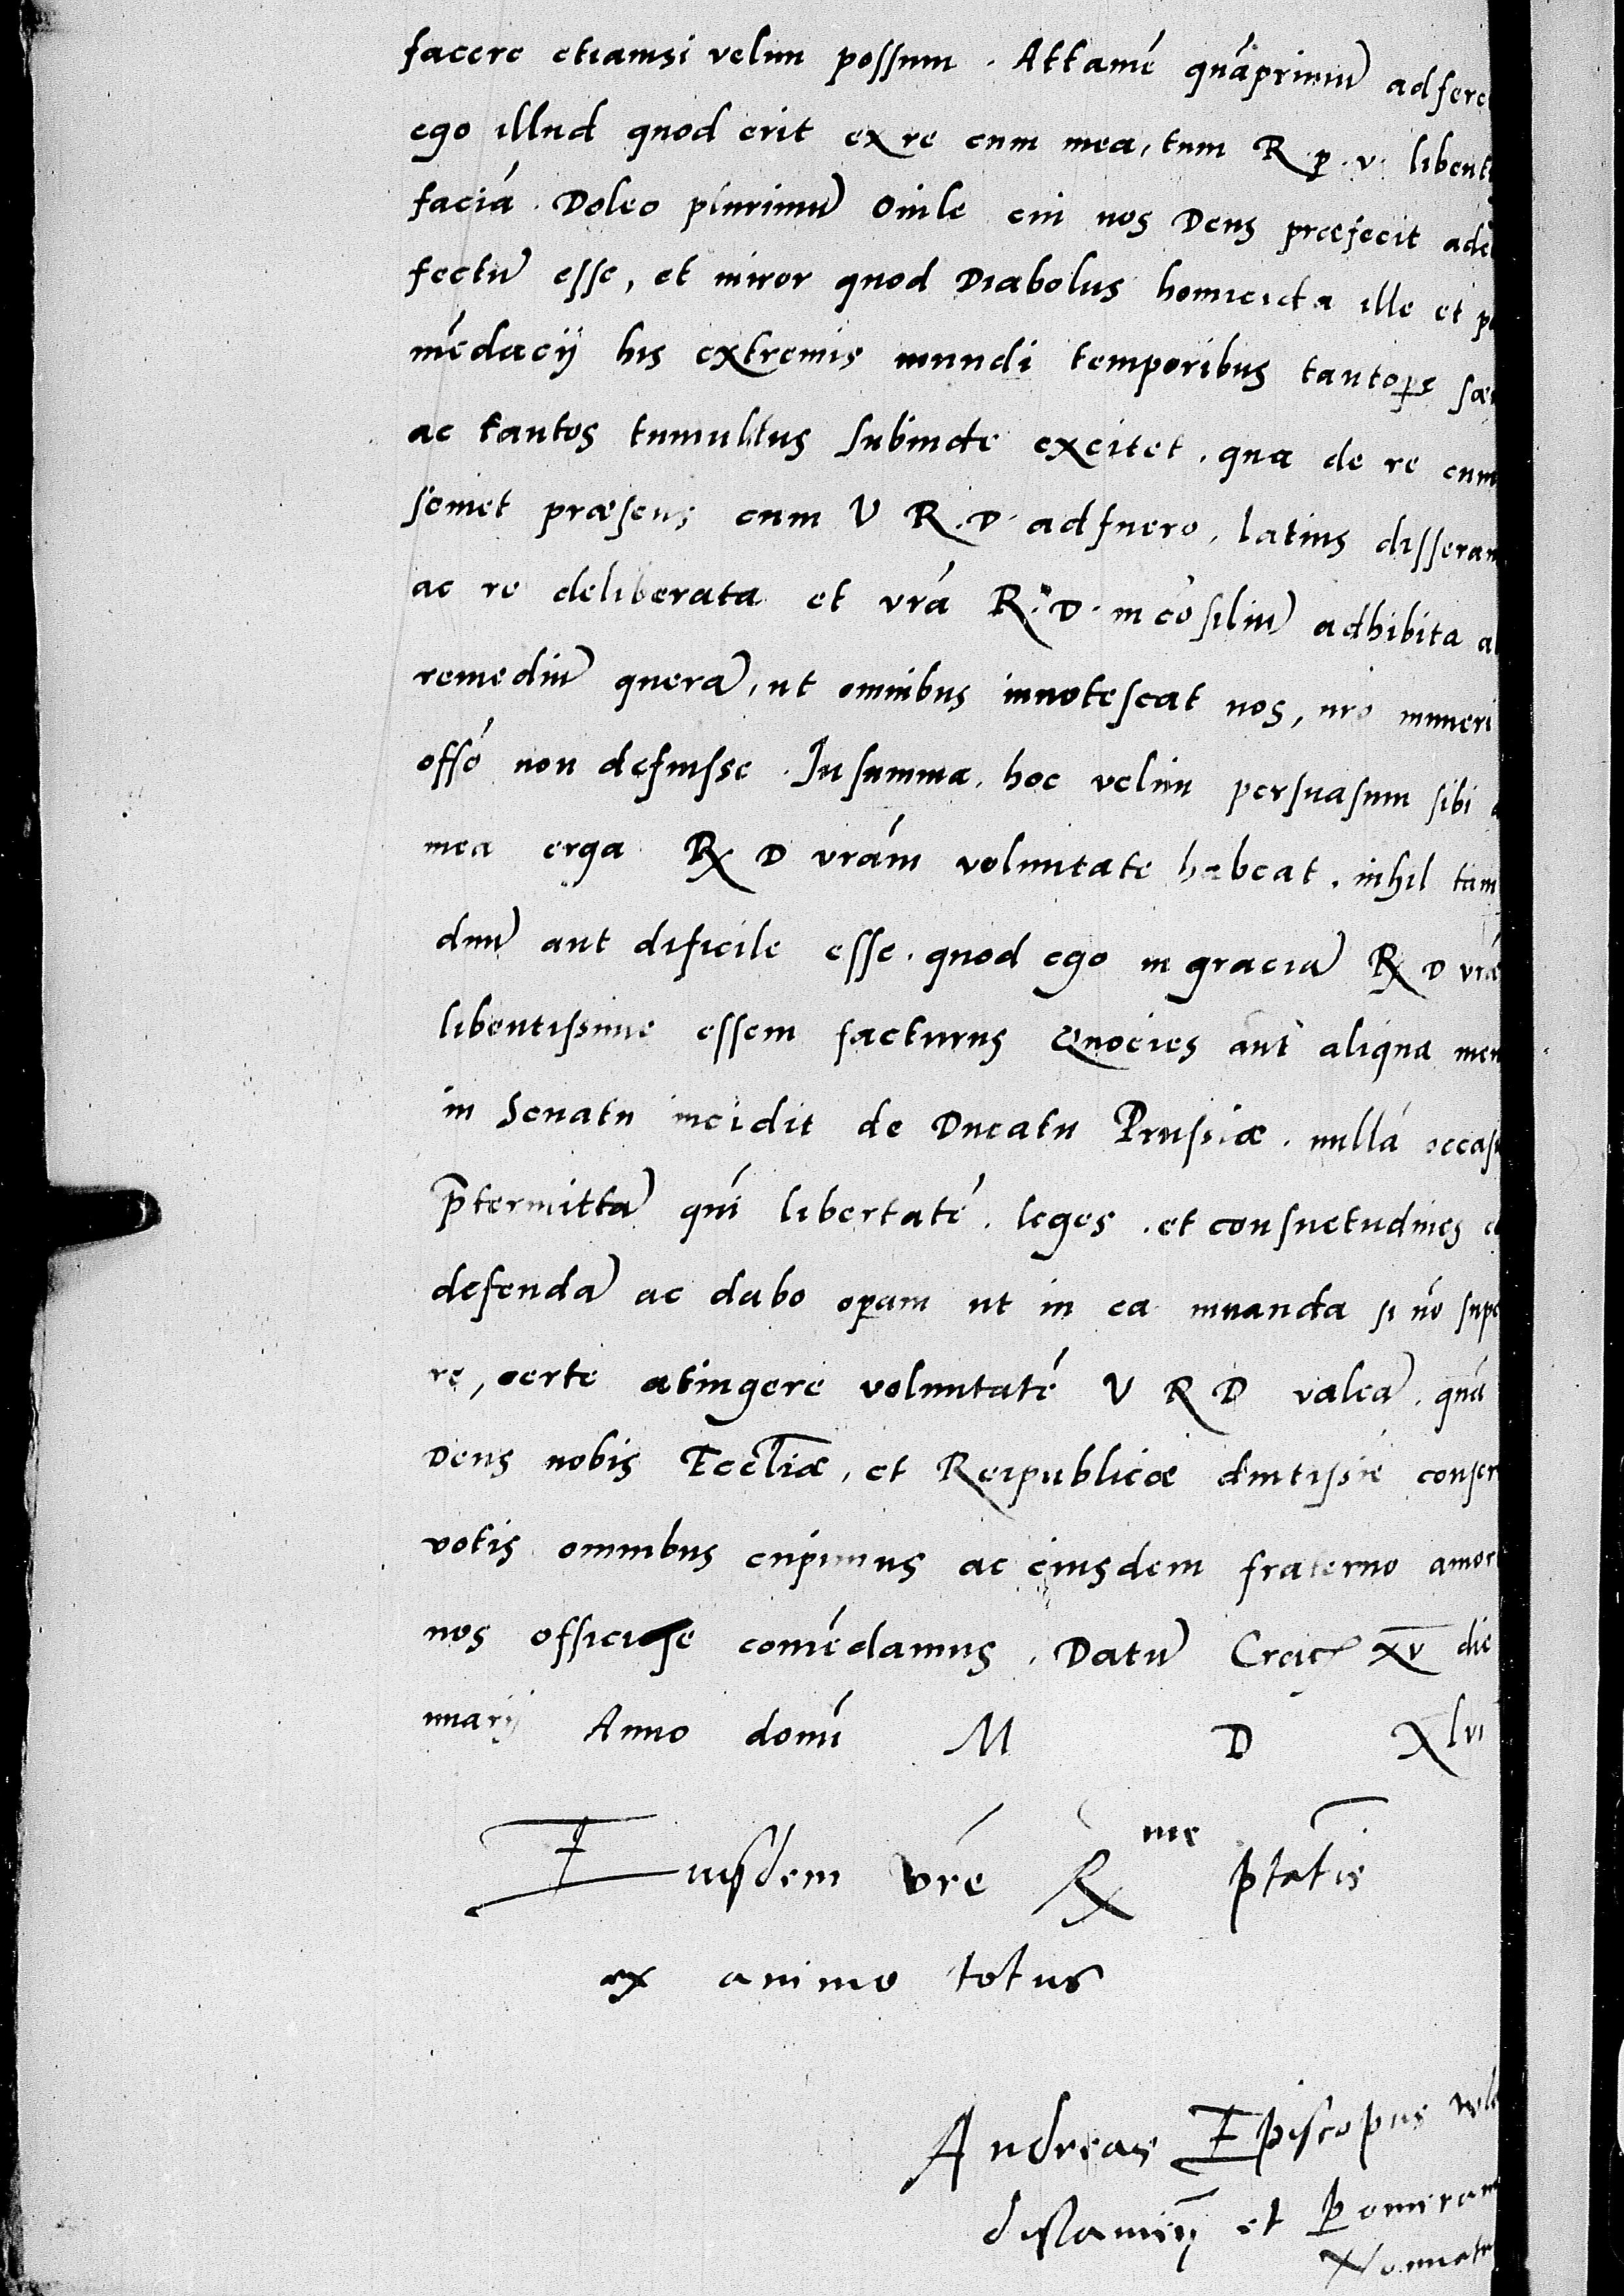 facere etiamsi velim possum. Attamē quāprimū adfere
ego illud quod erit ex re cum mea, tum R. p. v. libent
faciā. Doleo plurimū Ovile cui nos Deus præfecit ade
fectū esse, et miror quod Diabolus homicida ille et p
mēdacij his extremis mundi temporibus tantope sæ
ac tantos tumultus subinde excitet. qua de re cum
semet præsens cum V R. D. adfuero, latius disseram
ac re deliberata et vrā R. D. in cōsiliū adhibita a
remediū querā, ut omnibus innotescat nos, nro muneri
offō non defuisse. In summa, hoc velim persuasum sibi
mea erga R D vrām voluntate habeat. nihil tam
duū aut dificile esse. quod ego in graciā R D vræ
libentissime essem facturus Quocies aut aliqua men
in Senatu incidit de Ducatu Prussiæ. nullā occas
p̄termittā quī libertatē. leges. et consuetudines
defendā ac dabo opam ut in ea iuvanda si nō supe
re, certe atingere voluntatē V R D valeā. quā
Deus nobis Eccliæ, et Reipublicæ diutissiē conser
votis omnibus cupimus ac eiusdem fraterno amor
nos officiose comēdamus. Datū Crac xv die
nuarij Anno domī M D Xlvi
Eiusdem vrē R me ptatis
ex animo totus
Andreas Episcopus wla
dislavieñ et Pomeran
Nominatus